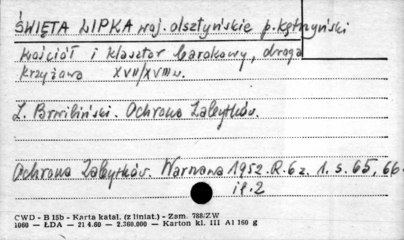 ŚWIĘTA LIPKA woj. olsztyńskie p. Kętrzyński
Kościół i klasztor barokowy, droga
krzyżowa XVII/XVIII w.
Ochrona Zabytków.
Ochrona Zabytków. Warszawa 1952. R. 6 z. 1. s. 65, 66.
il. 2
CWD - B 15b - Karta katal. (z liniat.) - Zam. 788/ZW
1060 — ŁDA — 21.4.60 — 2.360.000 — Karton kl. III A1 160 g